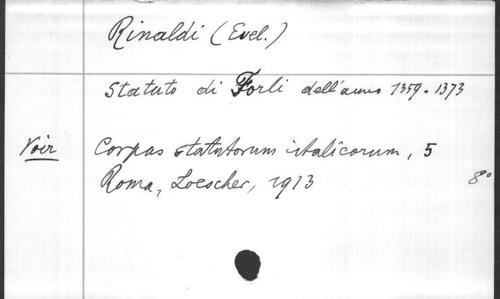 Rinaldi (Evel.)
Statuto di Forli dell'anno 1359-1373
Voir Corpus statutorum italicorum, 5
Roma, Loescher, 1913 8°